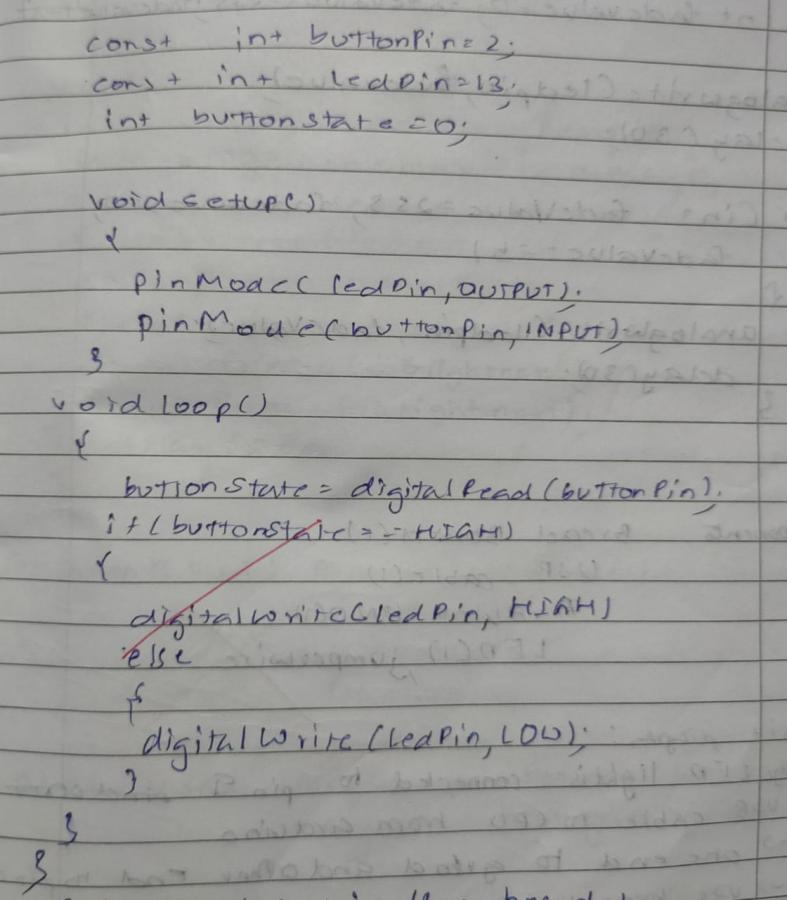 const int buttonPin=2;
const int ledPin=13;
int buttonstate=0;
void setup()
{
pinMode(ledPin,OUTPUT);
pinMode(buttonPin,INPUT);
}
void loop()
{
buttonState=digitalRead(buttonPin);
if(buttonState==HIGH)
{
digitalWrite(ledPin,HIGH)
else
{
digitalWrite(ledPin,LOW);
}
}
}